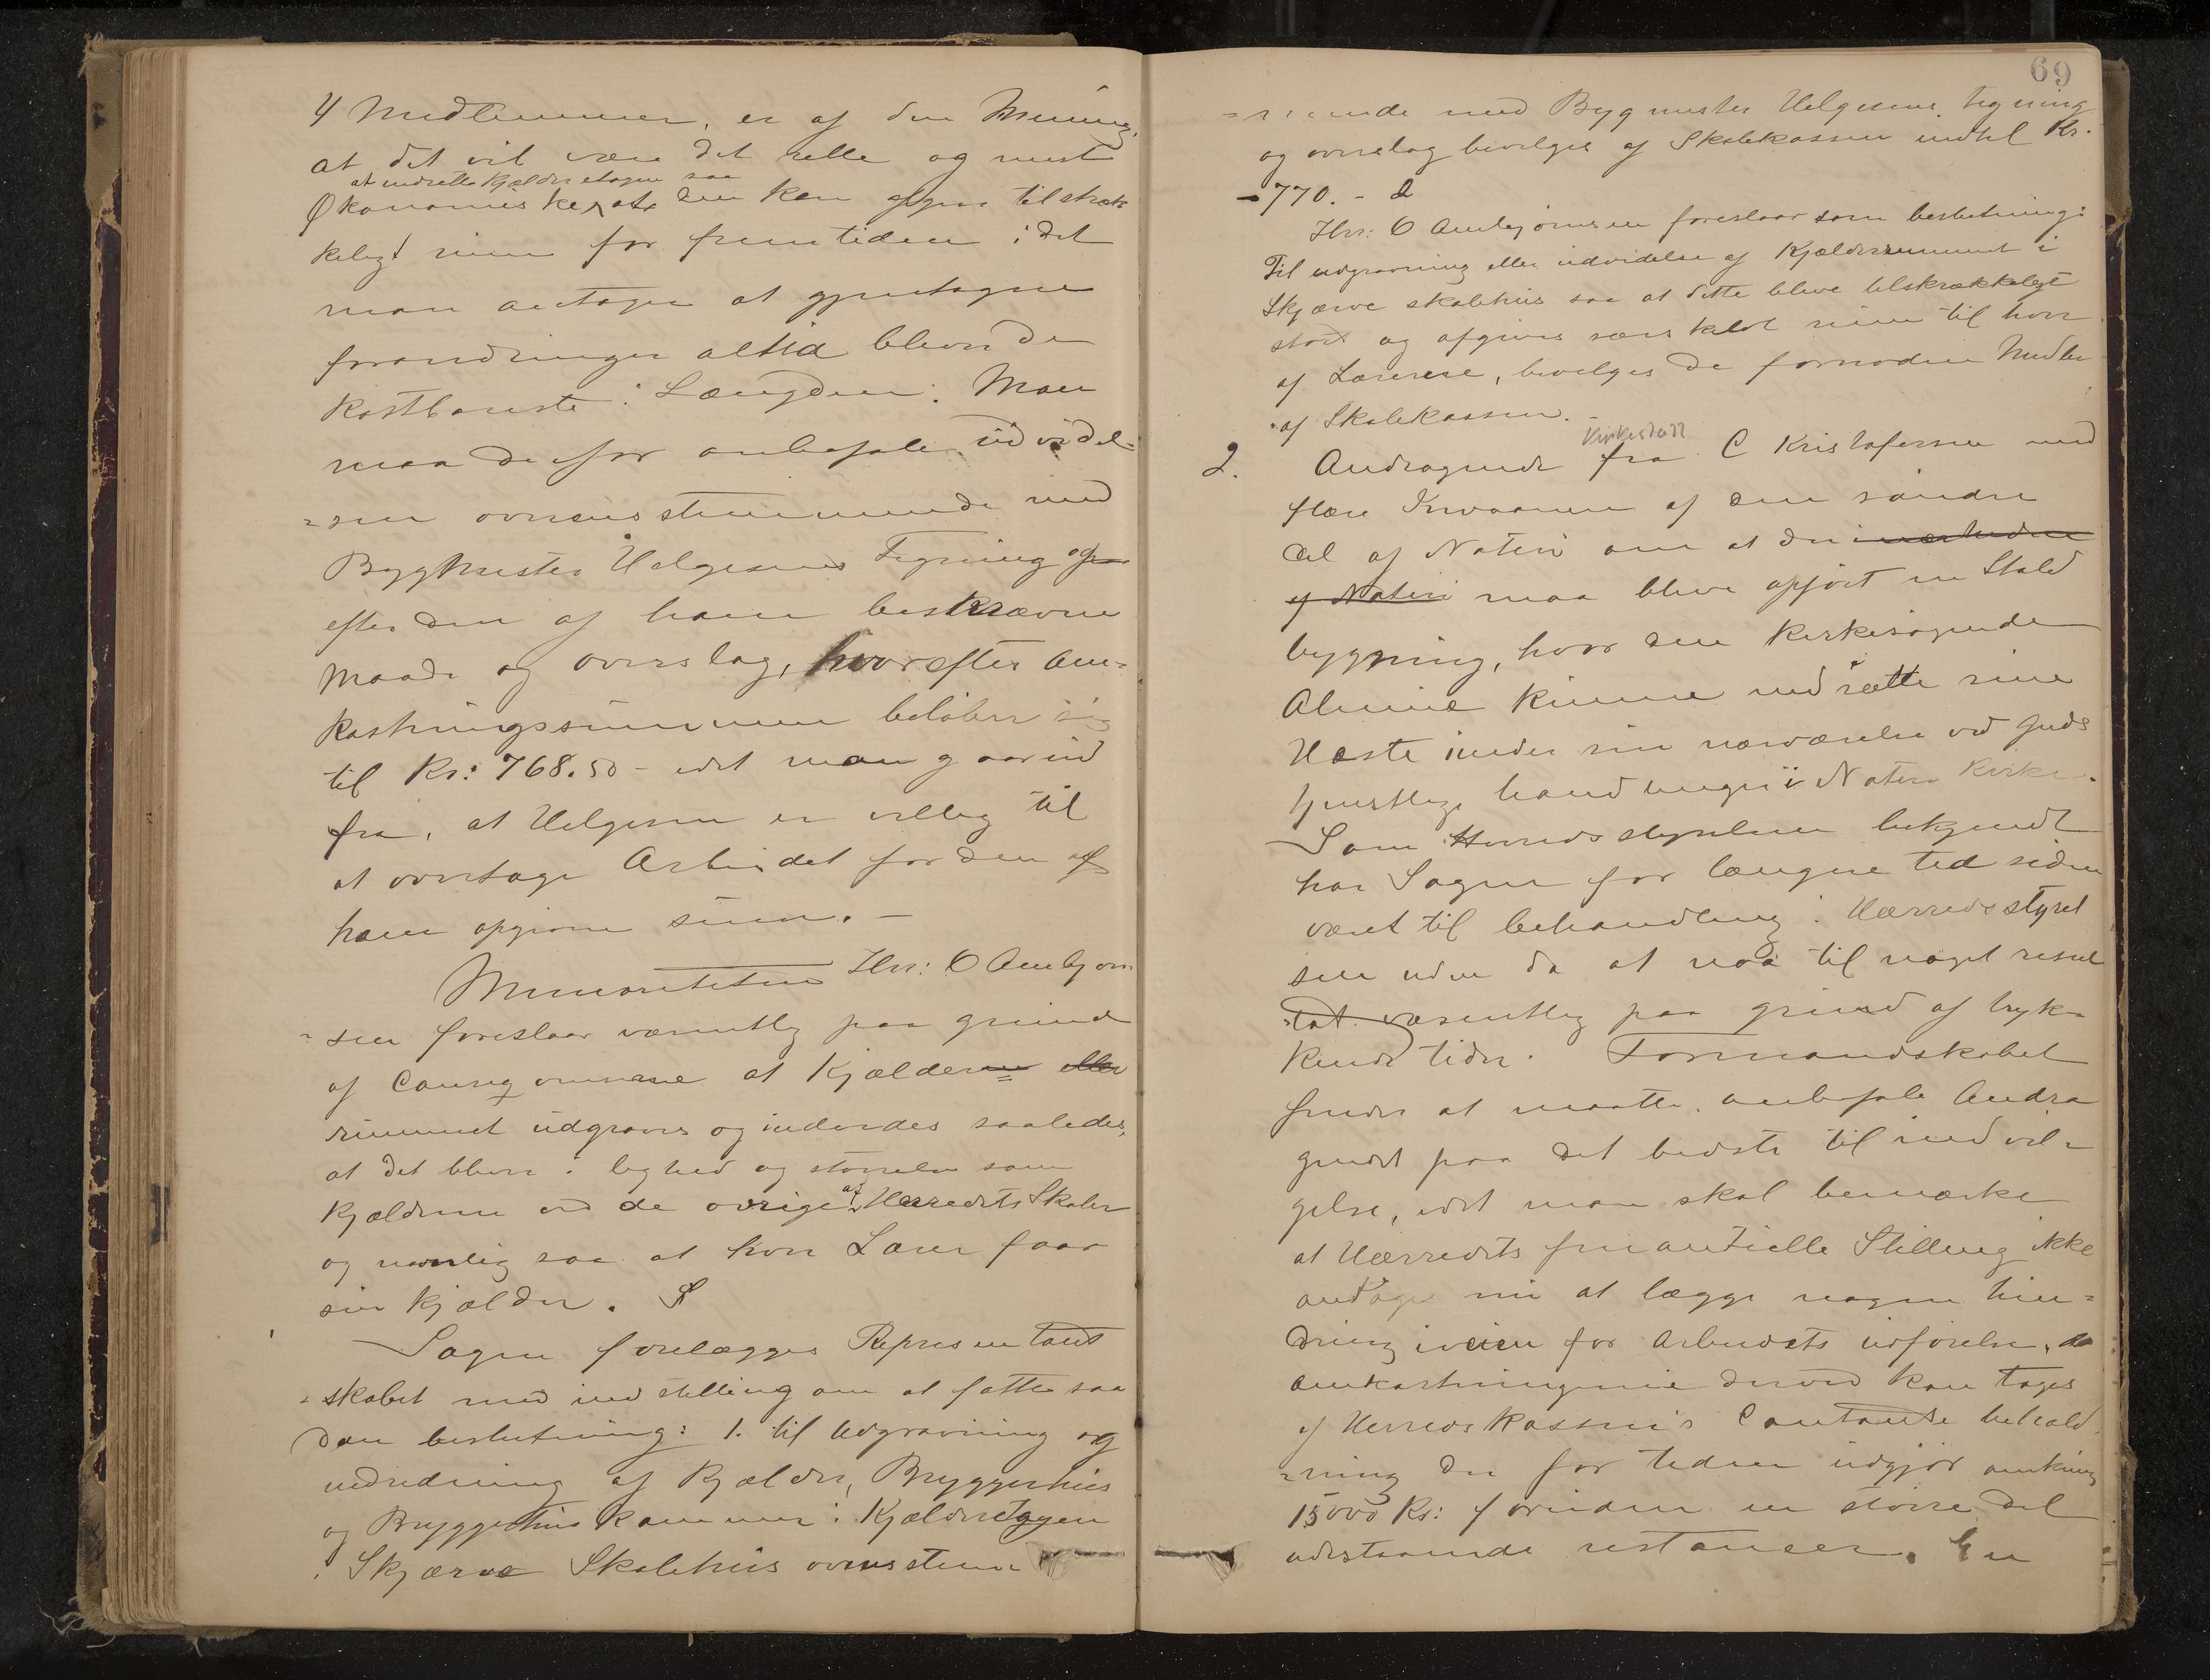 4 Medlemmer, er af den Mening,
at det vil være det rette og mest
at indrette Kjælderetagen saa
Økonomiske, at den kan afgive tilstræk
keligt rum for fremtiden i det
man antager at gjentagne
forandringer altid blever de
Kostbareste i Længden. Man
maa derfor anbefale udvidel-
=sen overensstemmende med
Bygmester Helgesens Tegning og
efter den af ham beskrævne
Maade og overslag, hvorefter Om=
kostningssummen beløber sig
til Kr: 768.50 - idet man gaar ud
fra, at Helgesen er villig til
at overtage Arbeidet for den af
ham opgivne sum. -
Minoriteten Hrr: O Ambjørn
=sen foreslaar væsentlig paa grund
af at Kjælderen eller
rummet udgraves og indredes saaledes,
at det bliver i lighed og størrelse som
Kjælderne ved de øvrige af Herredets Skoler
og navnlig saa at hver Lærer faar
sin Kjælder.
Sagen forelægges Representant
=skabet med indstilling om at fatte saa
dan beslutning: 1. til Udgravning og
indredning af Kjælder, Bryggerhus
og Bryggerhuskammer i Kjælderetagen
i Skjærve Skolehus overensstem=
69
=mende med Bygmester Helgesens tegning
og overslag bevilges af Skolekassen indtil Kr.
-770. - 2
Hrr: O Ambjørnsen foreslaar som beslutning:
Til udgravning eller udvidelse af Kjælderrummet i
Skjærve skolehus saa at dette bliver tilstrækkeligt
stort og afgives særskildt rum til hver
af Lærerne, bevilges de fornødne Midler
af Skolekassen. -
Kirkestald
2. Andragende fra C Kristofersen med
flere Invaanere af den søndre
del af Notero om at der i nærheden
af Notero maa blive opført en Stald
bygning, hvor den Kirkesøgende
Almue kunne indsætte sine
Heste under sin nærværelse ved Guds
tjenstlige handlinger i Notero Kirke.
Som Herredsstyrelsen bekjendt
har Sagen for længere tid siden
været til behandling i Herredsstyrel
sen uden da at naa til noget resul
=tat væsentlig paa grund af tryk=
kende tider. Formandskabet
finder at maatte anbefale Andra
gendet paa det bedste til indvil=
gelse, idet man skal bemærke
at Herredets finantielle Stilling ikke
antages nu at lægge nogen hin=
dring iveien for Arbeidets udførelse, da
omkostningerne derved kan tages
af Herredskassens Contante behold
=ning der for tiden udgjør omkring
15000 Kr: foruden en større del
udestaaende restancer. En